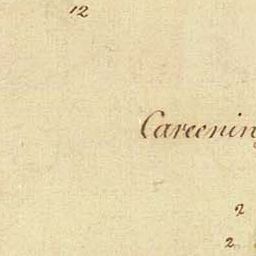 12
Careenin
2
2